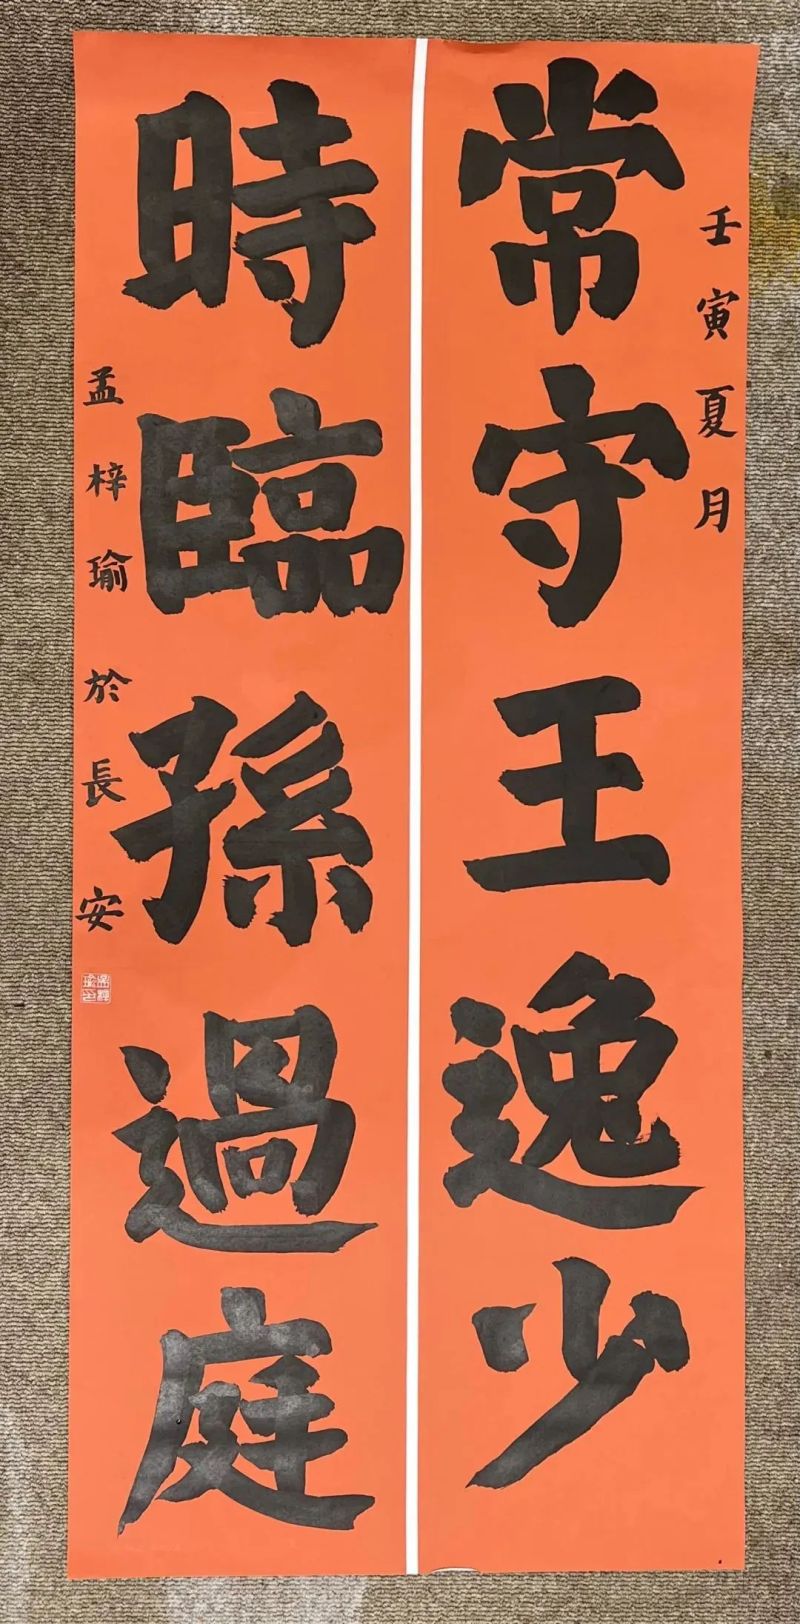 壬寅夏月
常守王逸少
時臨孫過庭
孟梓瑜於長安